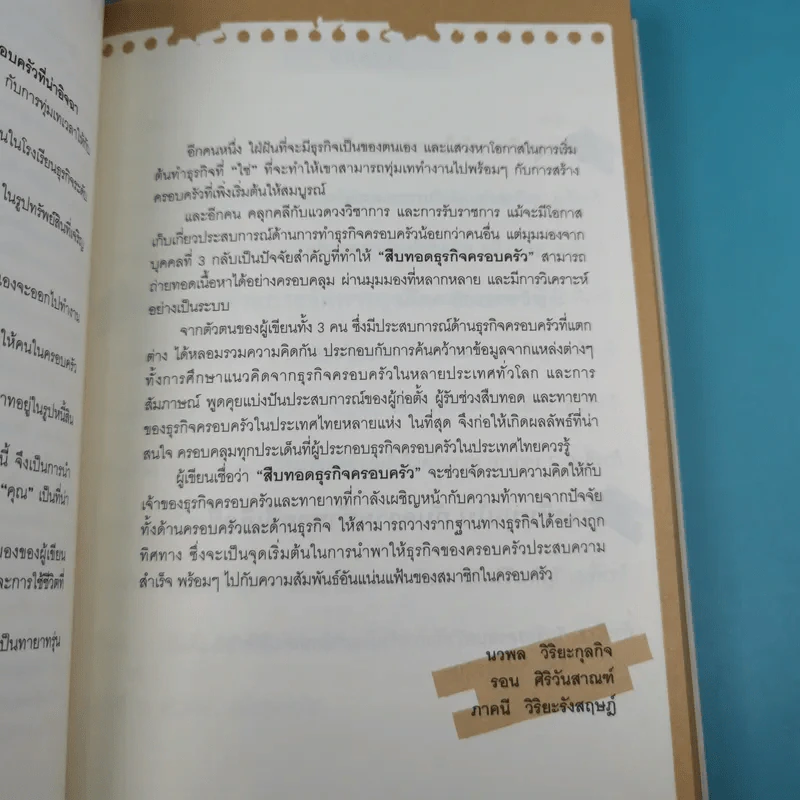 อบครัวที่น่าอิจฉา
กับการทุ่มเทเวลาให้กับ
นในโรงเรียนธุรกิจระดับ
ในรูปทรัพย์สินที่เจริญ
เองจะออกไปทำงาน
ให้คนในครอบครัว
าทอยู่ในรูปหนี้สิน
นี้ จึงเป็นการนำ
"คุณ" เป็นที่น่า
ของของผู้เขียน
ละการใช้ชีวิตที่
เป็นทายาทรุ่น
อีกคนหนึ่ง ใฝ่ฝันที่จะมีธุรกิจเป็นของตนเอง และแสวงหาโอกาสในการเริ่ม
ต้นทำธุรกิจที่ "ใช่" ที่จะทำให้เขาสามารถทุ่มเททำงานไปพร้อมๆ กับการสร้าง
ครอบครัวที่เพิ่งเริ่มต้นให้สมบูรณ์
และอีกคน คลุกคลีกับแวดวงวิชาการ และการรับราชการ แม้จะมีโอกาส
เก็บเกี่ยวประสบการณ์ด้านการทำธุรกิจครอบครัวน้อยกว่าคนอื่น แต่มุมมองจาก
บุคคลที่ 3 กลับเป็นปัจจัยสำคัญที่ทำให้ "สืบทอดธุรกิจครอบครัว" สามารถ
ถ่ายทอดเนื้อหาได้อย่างครอบคลุม ผ่านมุมมองที่หลากหลาย และมีการวิเคราะห์
อย่างเป็นระบบ
จากตัวตนของผู้เขียนทั้ง 3 คน ซึ่งมีประสบการณ์ด้านธุรกิจครอบครัวที่แตก
ต่าง ได้หลอมรวมความคิดกัน ประกอบกับการค้นคว้าหาข้อมูลจากแหล่งต่างๆ
ทั้งการศึกษาแนวคิดจากธุรกิจครอบครัวในหลายประเทศทั่วโลก และการ
สัมภาษณ์ พูดคุยแบ่งปันประสบการณ์ของผู้ก่อตั้ง ผู้รับช่วงสืบทอด และทายาท
ของธุรกิจครอบครัวในประเทศไทยหลายแห่ง ในที่สุด จึงก่อให้เกิดผลลัพธ์ที่น่า
สนใจ ครอบคลุมทุกประเด็นที่ผู้ประกอบธุรกิจครอบครัวในประเทศไทยควรรู้
ผู้เขียนเชื่อว่า "สืบทอดธุรกิจครอบครัว" จะช่วยจัดระบบความคิดให้กับ
เจ้าของธุรกิจครอบครัวและทายาทที่กำลังเผชิญหน้ากับความท้าทายจากปัจจัย
ทั้งด้านครอบครัวและด้านธุรกิจ ให้สามารถวางรากฐานทางธุรกิจได้อย่างถูก
ทิศทาง ซึ่งจะเป็นจุดเริ่มต้นในการนำพาให้ธุรกิจของครอบครัวประสบความ
สำเร็จ พร้อมๆ ไปกับความสัมพันธ์อันแน่นแฟ้นของสมาชิกในครอบครัว
นวพล วิริยะกุลกิจ
รอน ศิริวันสาณฑ์
ภาคนี วิริยะรังสฤษฎ์